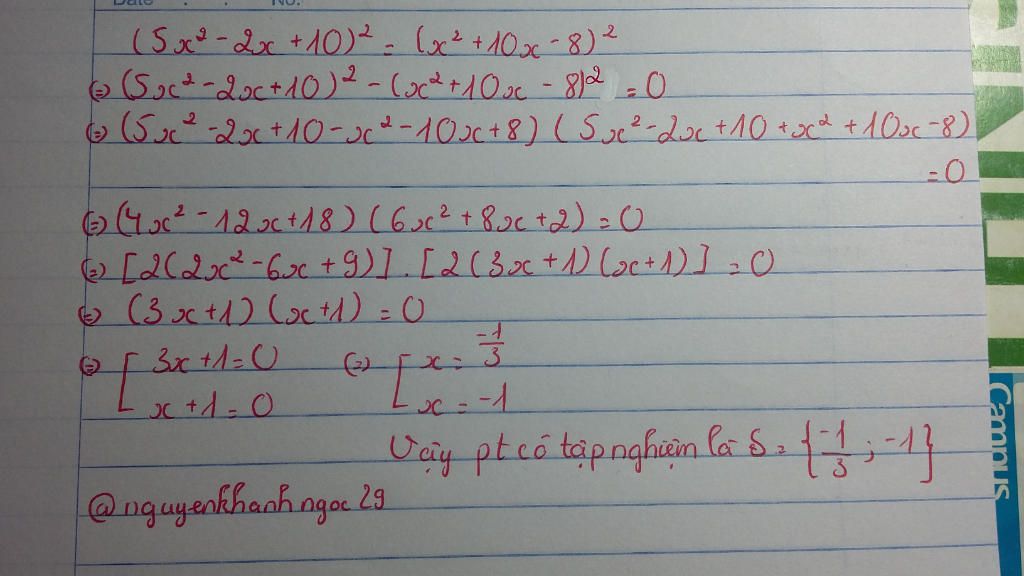 Date . . No.
(5x² - 2x + 10)² = (x² + 10x - 8)²
(=) (5x² - 2x + 10)² - (x² + 10x - 8)² = 0
(=) (5x² - 2x + 10 - x² - 10x + 8) (5x² - 2x + 10 + x² + 10x - 8)
= 0
(=) (4x² - 12x + 18) (6x² + 8x + 2) = 0
(=) [2(2x² - 6x + 9)] . [2(3x + 1)(x + 1)] = 0
(=) (3x + 1) (x + 1) = 0
(=) [ 3x + 1 = 0 (=) [ x = -1/3
x + 1 = 0 x = -1
Vậy pt có tập nghiệm là S = {-1/3 ; -1}
@nguyenkhanhngoc29
Campus